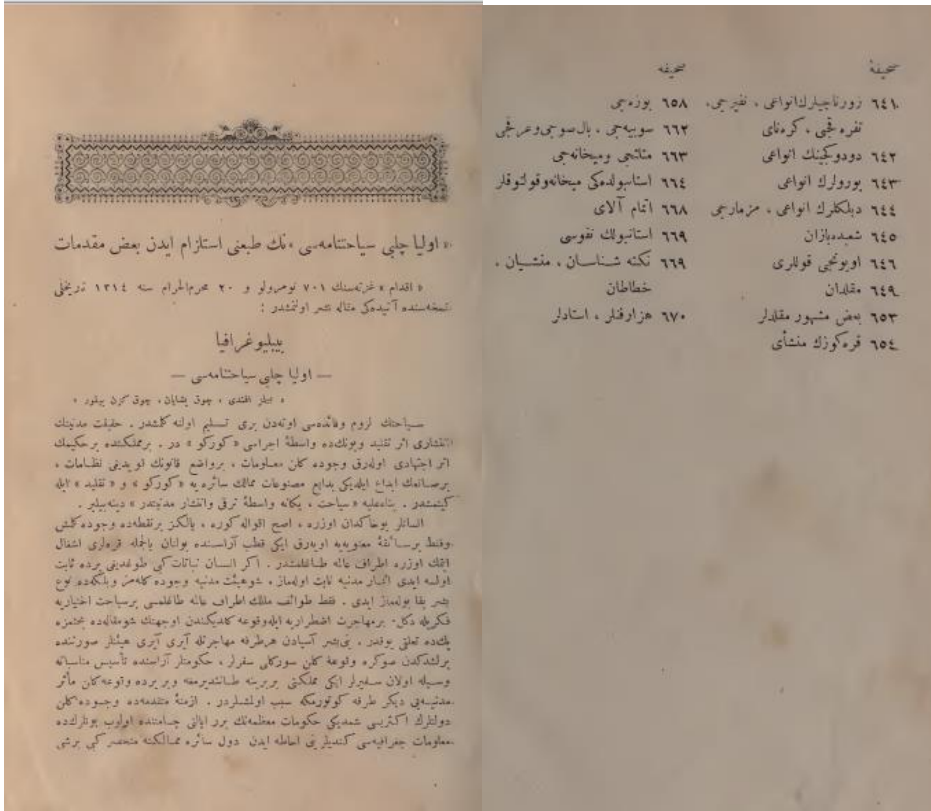 صحیفه
٦٤١ زورناجیلرك انواعی ، نفیرجی،
نفره جی ، كره نای
٦٤٢ دودوكجینك انواعی
٦٤٣ بورولرك انواعی
٦٤٤ دبلكلرك انواعی ، مزمارجی
٦٤٥ شعبده بازان
٦٤٦ اویونجی قوللری
٦٤٩ مقلدان
٦٥٣ بعض مشهور مقلدلر
٦٥٤ قره كوزك منشأی
صحیفه
٦٥٨ بوزه جی
٦٦٢ سوبیه جی ، بال صویی وعرقجی
٦٦٣ مثلثجی ومیخانه جی
٦٦٤ استانبولده كی میخانه وقولتوقلر
٦٦٨ اتمام آلای
٦٦٩ استانبولك نفوسی
٦٦٩ نكته شناسان ، منشیان ،
خطاطان
٦٧٠ هزارفنلر ، استادلر
« اولیا چلبی سیاحتنامه سی » نك طبعنی استلزام ایدن بعض مقدمات
« اقدام » غزته سنك ٧٠١ نومرولو و ٢٠ محرم الحرام سنه ١٣١٤ تاریخلی
نسخه سنده آتیده كی مقاله نشر اولنمشدر :
بیبلیوغرافیا
— اولیا چلبی سیاحتنامه سی —
« بیلمز افندی ، چوق یشایان ، چوق كزن بیلور »
سیاحتك لزوم وفائده سی اوته دن بری تسلیم اولنه كلمشدر . حقیقت مدنیتك
انتشاری اثر تقلید وبونك ده واسطهٔ اجراسی « كوركو » در . بر مملكتده بر حكیمك
اثر اجتهادی اوله رق وجوده كلن معلومات ، بر واضع قانونك قویدیغی نظامات ،
بر صانعك ابداع ایلدیكی بدایع مصنوعات ممالك سائره یه « كوركو » و « تقلید » ایله
كیتمشدر . بناءعلیه « سیاحت ، یكانه واسطهٔ ترقی وانتشار مدنیتدر » دینه بیلیر .
انسانلر بوخاكدان اوزره ، اصح اقواله كوره ، یالكز بر نقطه ده وجوده كلمش
وفقط بر سائقهٔ معنویه یه اویه رق ایكی قطب آراسنده بولنان بالجمله قره لری اشغال
ایتمك اوزره اطراف عالمه طاغلمشدر . اكر انسان نباتات كبی طوغدیغی یرده ثابت
اولسه ایدی آثار مدنیه ثابت اوله ماز ، شو هیئت مدنیه وجوده كله مز وبلكه ده نوع
بشر بقا بوله ماز ایدی . فقط طوائف مللك اطراف عالمه طاغلمسی بر سیاحت اختیاریه
فكریله دكل - بر مهاجرت اضطراریه ایله وقوعه كلدیكندن اوجهتك شو مقاله ده بحثمزه
پك ده تعلقی یوقدر . بنی بشر آسیادن هر طرفه مهاجرتله آیری آیری هیئتلر صورتنده
یرلشدكدن صوكره وقوعه كلن سوركلی سفرلر ، حكومتلر آراسنده تأسیس مناسباته
وسیله اولان سفیرلر ایكی مملكتی بربرینه طانیتدیرمغه و بر یرده وقوعه كلن مآثر
مدنیه یی دیكر طرفه كوتورمكه سبب اولمشلردر . ازمنهٔ متقدمه ده وجوده كلن
دولتلرك اكثریسی شمدیكی حكومات معظمه نك برر ایالتی جسامتنده اولوب بونلرك ده
معلومات جغرافیه سی كندیلرینی احاطه ایدن دول سائره ممالكنه منحصر كبی بر شی